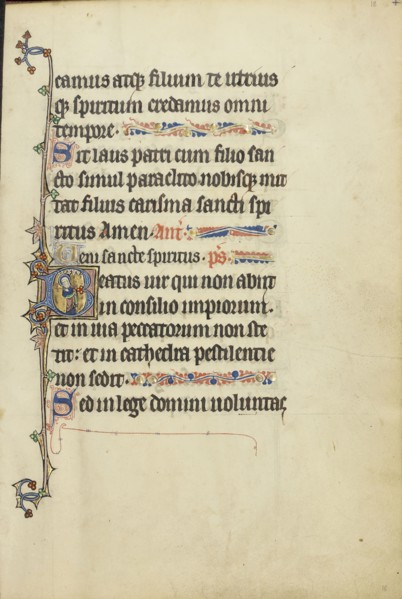 camus atq; filium te utrius
q; spiritum credamus omni
tempore.
Sit laus patri cum filio san
cto simul paraclito nobisq; mit
tat filius carisma sancti spi
ritus Amen. Ant.
Veni sancte spiritus. ps.
Beatus uir qui non abiit
in consilio impiorum.
et in uia peccatorum non ste
tit: et in cathedra pestilentie
non sedit.
Sed in lege domini uoluntas